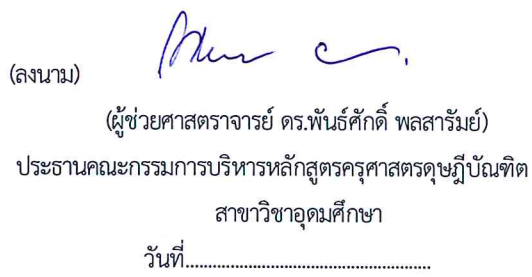 (ลงนาม)
(ผู้ช่วยศาสตราจารย์ ดร.พันธ์ศักดิ์ พลสารัมย์)
ประธานคณะกรรมการบริหารหลักสูตรครุศาสตรดุษฎีบัณฑิต
สาขาวิชาอุดมศึกษา
วันที่....................................................